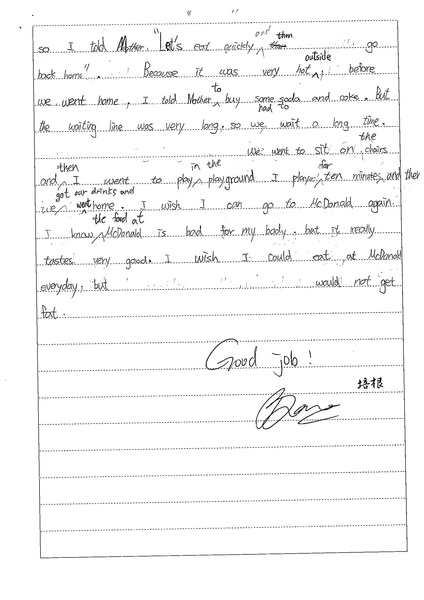 and then
so I told Mother. "Let's eat quickly ^ then go
outside
back home". Because it was very hot ^, before
to
we went home, I told Mother ^ buy some soda and coke. But
had to
the waiting line was very long. so we ^ wait a long time.
the
We went to sit on ^ chairs
then in the for
and ^ I went to play ^ playground I played ^ ten minutes and then
got our drinks and
we ^ went home. I wish I can go to McDonald again.
the food at
I know ^ McDonald is bad for my body. but it really
tastes very good. I wish I could eat at McDonald
everyday, but would not get
fat.
Good job!
培根